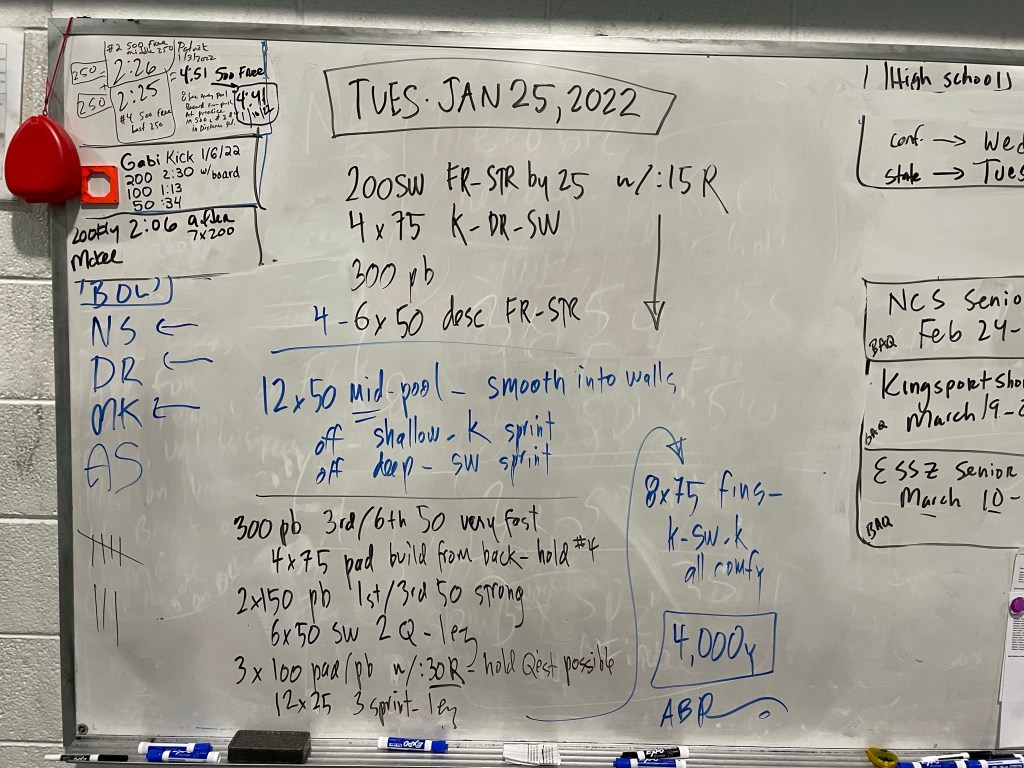 #2 500 free
middle 250
250
2:26
250
2:25
#4 500 free
last 250
1/3/2022
= 4:51 500 Free
At practice
in Distance
Gabi Kick 1/6/22
200 2:30 w/board
100 1:13
50 :34
200 Fly 2:06 after
7x200
McKee
"BOL"
NS ←
DR ←
MK ←
AS
TUES. JAN 25, 2022
200 SW FR-STR by 25 w/:15 R
4 x 75 K-DR-SW
300 pb
4-6x50 desc FR-STR
12x50 mid-pool - smooth into walls
off shallow - K sprint
off deep - SW sprint
300 pb 3rd/6th 50 very fast
4x75 pad build from back - hold #4
2x150 pb 1st/3rd 50 strong
6x50 SW 2 Q - 1 ez
3 x 100 pad/pb w/:30R - hold Q'est possible
12x25 3 sprint - 1 ez
8x75 fins -
k-sw-k
all comfy
4,000y
ABR
High school
conf. → Wed
state → Tues
NCS Senio
BAQ Feb 24-
Kingsport Sho
BAQ March 19-2
ESSZ Senior
March 10-
BAQ
EXPO
EXPO